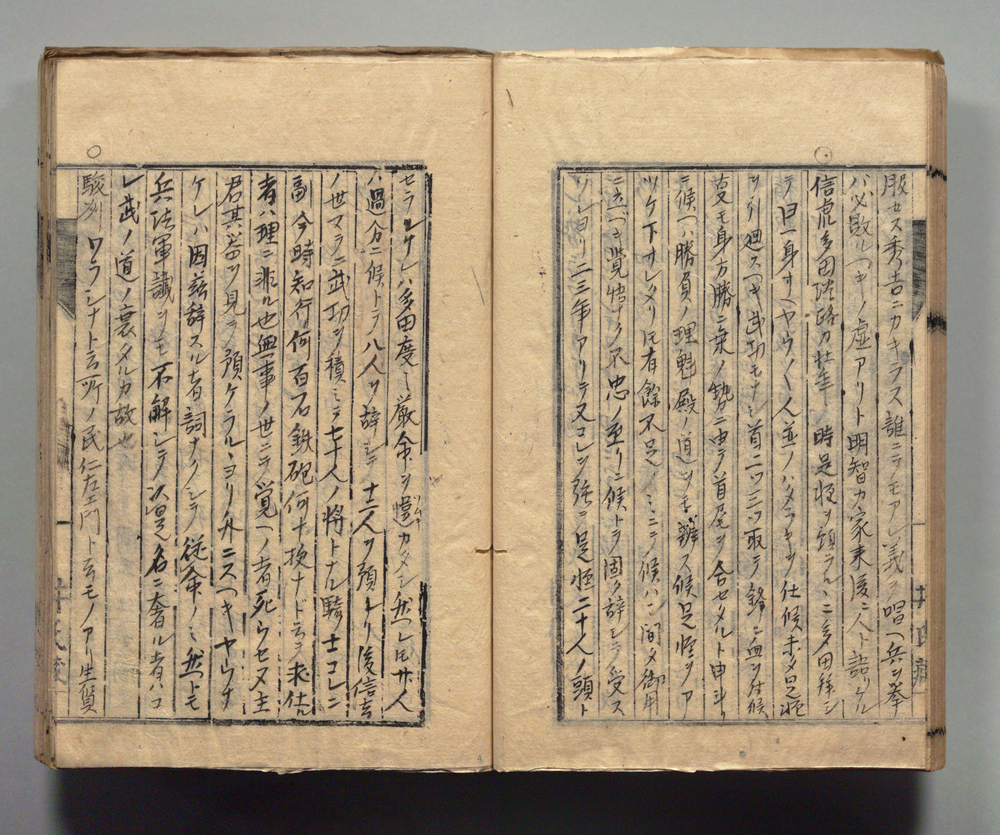 服セス秀吉ニカキラス誰ニテモアレ義ヲ唱ヘ兵ヲ挙
ハ必敗ルヘキノ虚アリト明智カ家来後ニ人ト語リケル
信虎多田淡路カ壮年ノ時足軽ヲ預ラルヽニ多田拝シ
テ曰一身サヘヤウ〱人並ノハタラキヲ仕候未タ足軽
ヲ引廻スヘキ武功モナシ首二ツ三ツ取テ鋒ニ血ヲ付候
夏モ身方勝ニ乗ノ勢ニ由テ首尾ヲ合セタルト申斗リ
ニ候ヘハ勝負ノ理魁殿ノ道ヲモ辨ス候足軽ヲア
ツケ下サレタリ氏有餘不足ノミニテ候ハン間タ御用
ニ立ヘキ覚悟ナク不忠ノ至リニ候トテ固ク辞シテ受ス
ソレヨリ二三年アリテ又コレヲ強ヨ足軽二十人ノ頭ト
セラルケレハ多田度〻厳命ヲ憧カタシ然レモ廿人
ハ過分ニ候トテ八人ヲ辞シテ十二人ヲ預レリ後信玄
ノ世マテニ武功ヲ積ミテ七十人ノ将トナル騎士コレニ
副今時知行何百石鉄砲何十挺ナト云ヲ求仕
者ハ理ニ非ル也無事ノ世ニテ覚ヘノ者死ウセヌ主
君其器ヲ見テ預ケラルヽヨリ外ニスヘキヤウナ
ケレハ因茲辞スル者詞ナクシテ従命ノミ然トモ
兵法軍識ヲモ不解シテ次第名ニ奢ル者ハコ
レ武ノ道ノ衰タルカ故也
駿州ワラシナト云所ノ民仁左エ門ト云モノアリ生質